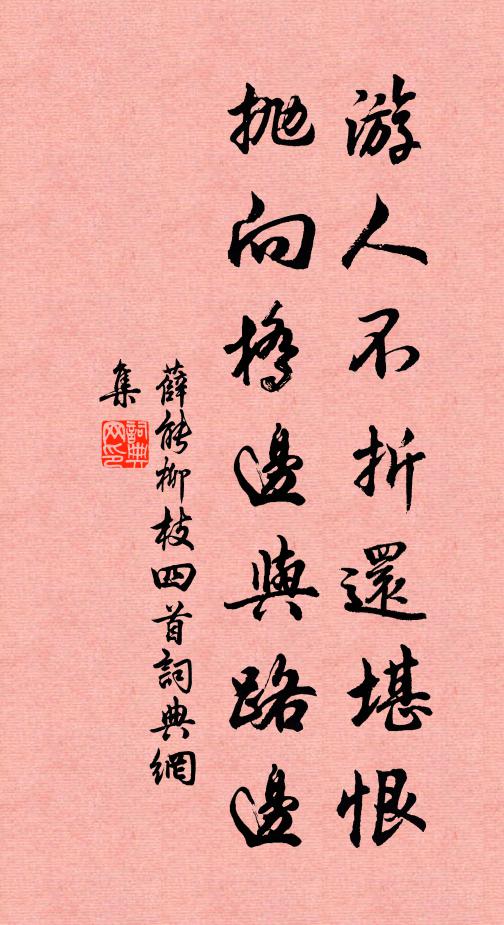 游人不折還堪恨
抛向橋邊與路邊
薛能柳枝四首詞典網
集
詞典网印